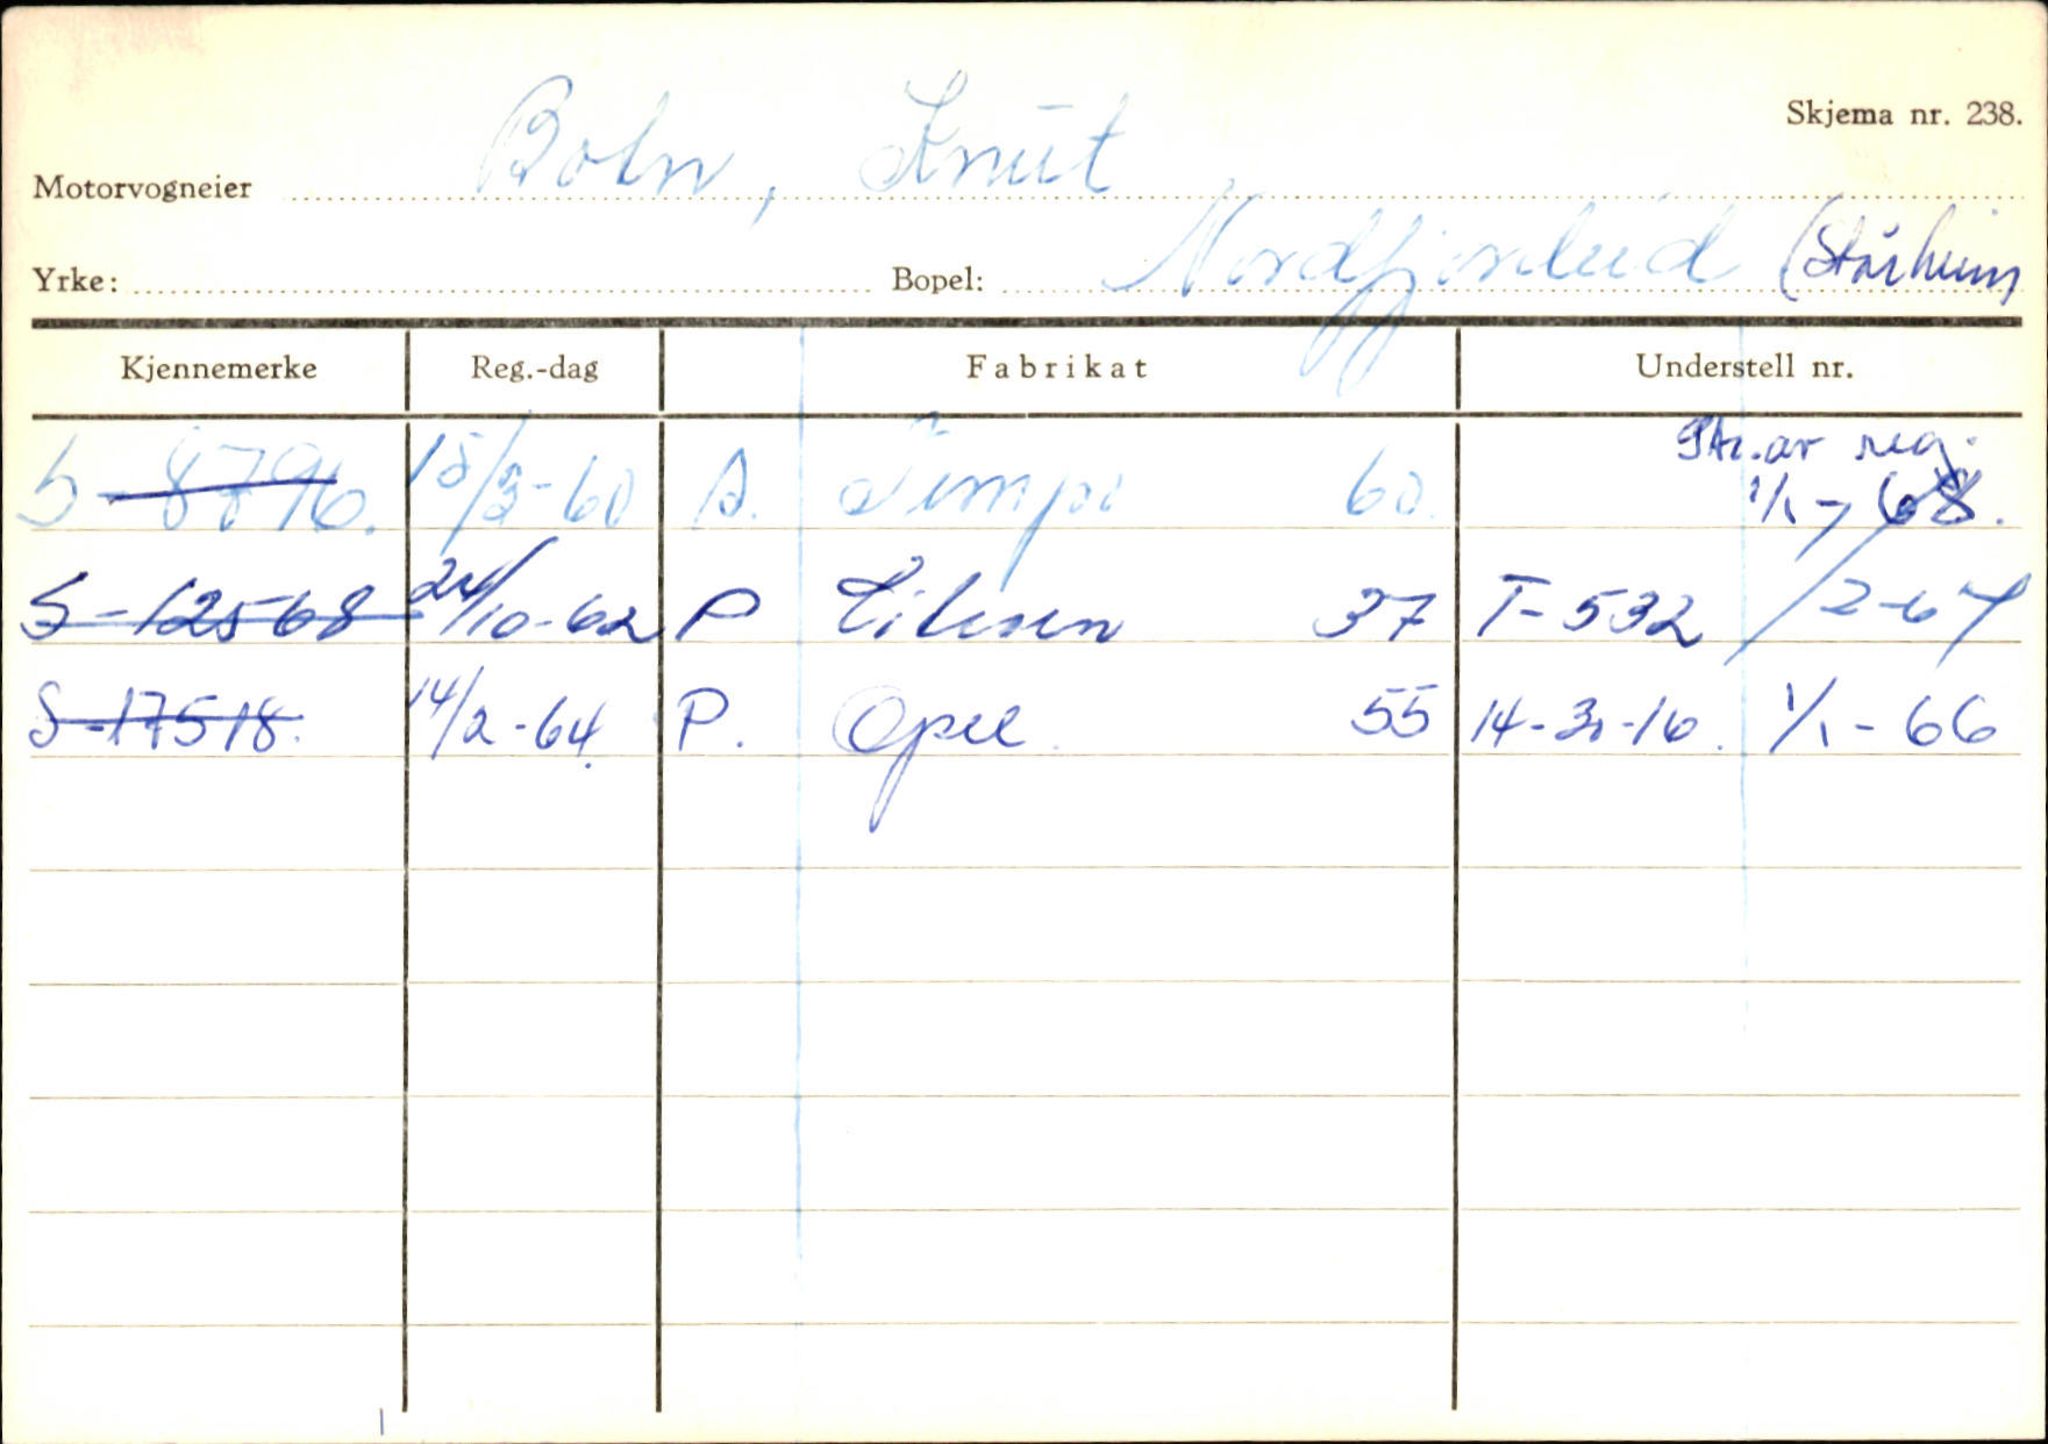 Skjema nr. 238.
Motorvogneier Bohn, Knut
Yrke: Bopel: Nordfjordeid (Stårheim
Kjennemerke Reg.-dag Fabrikat Understell nr.
Str. av reg.
S-8796. 18/3-60 A. Tempo 60 1/1-68.
S-12568 24/10-62 P 37 T-532 /2-67
S-17518. 14/2-64. P. Opel 55 14-31-16. 1/1-66